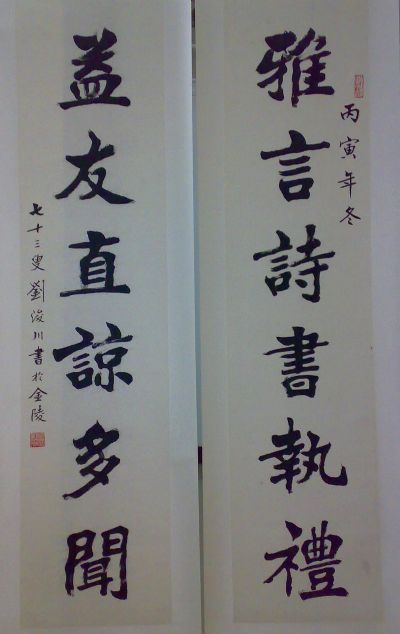 雅言詩書執禮
丙寅年冬
益友直諒多聞
七十三叟劉浚川書於金陵